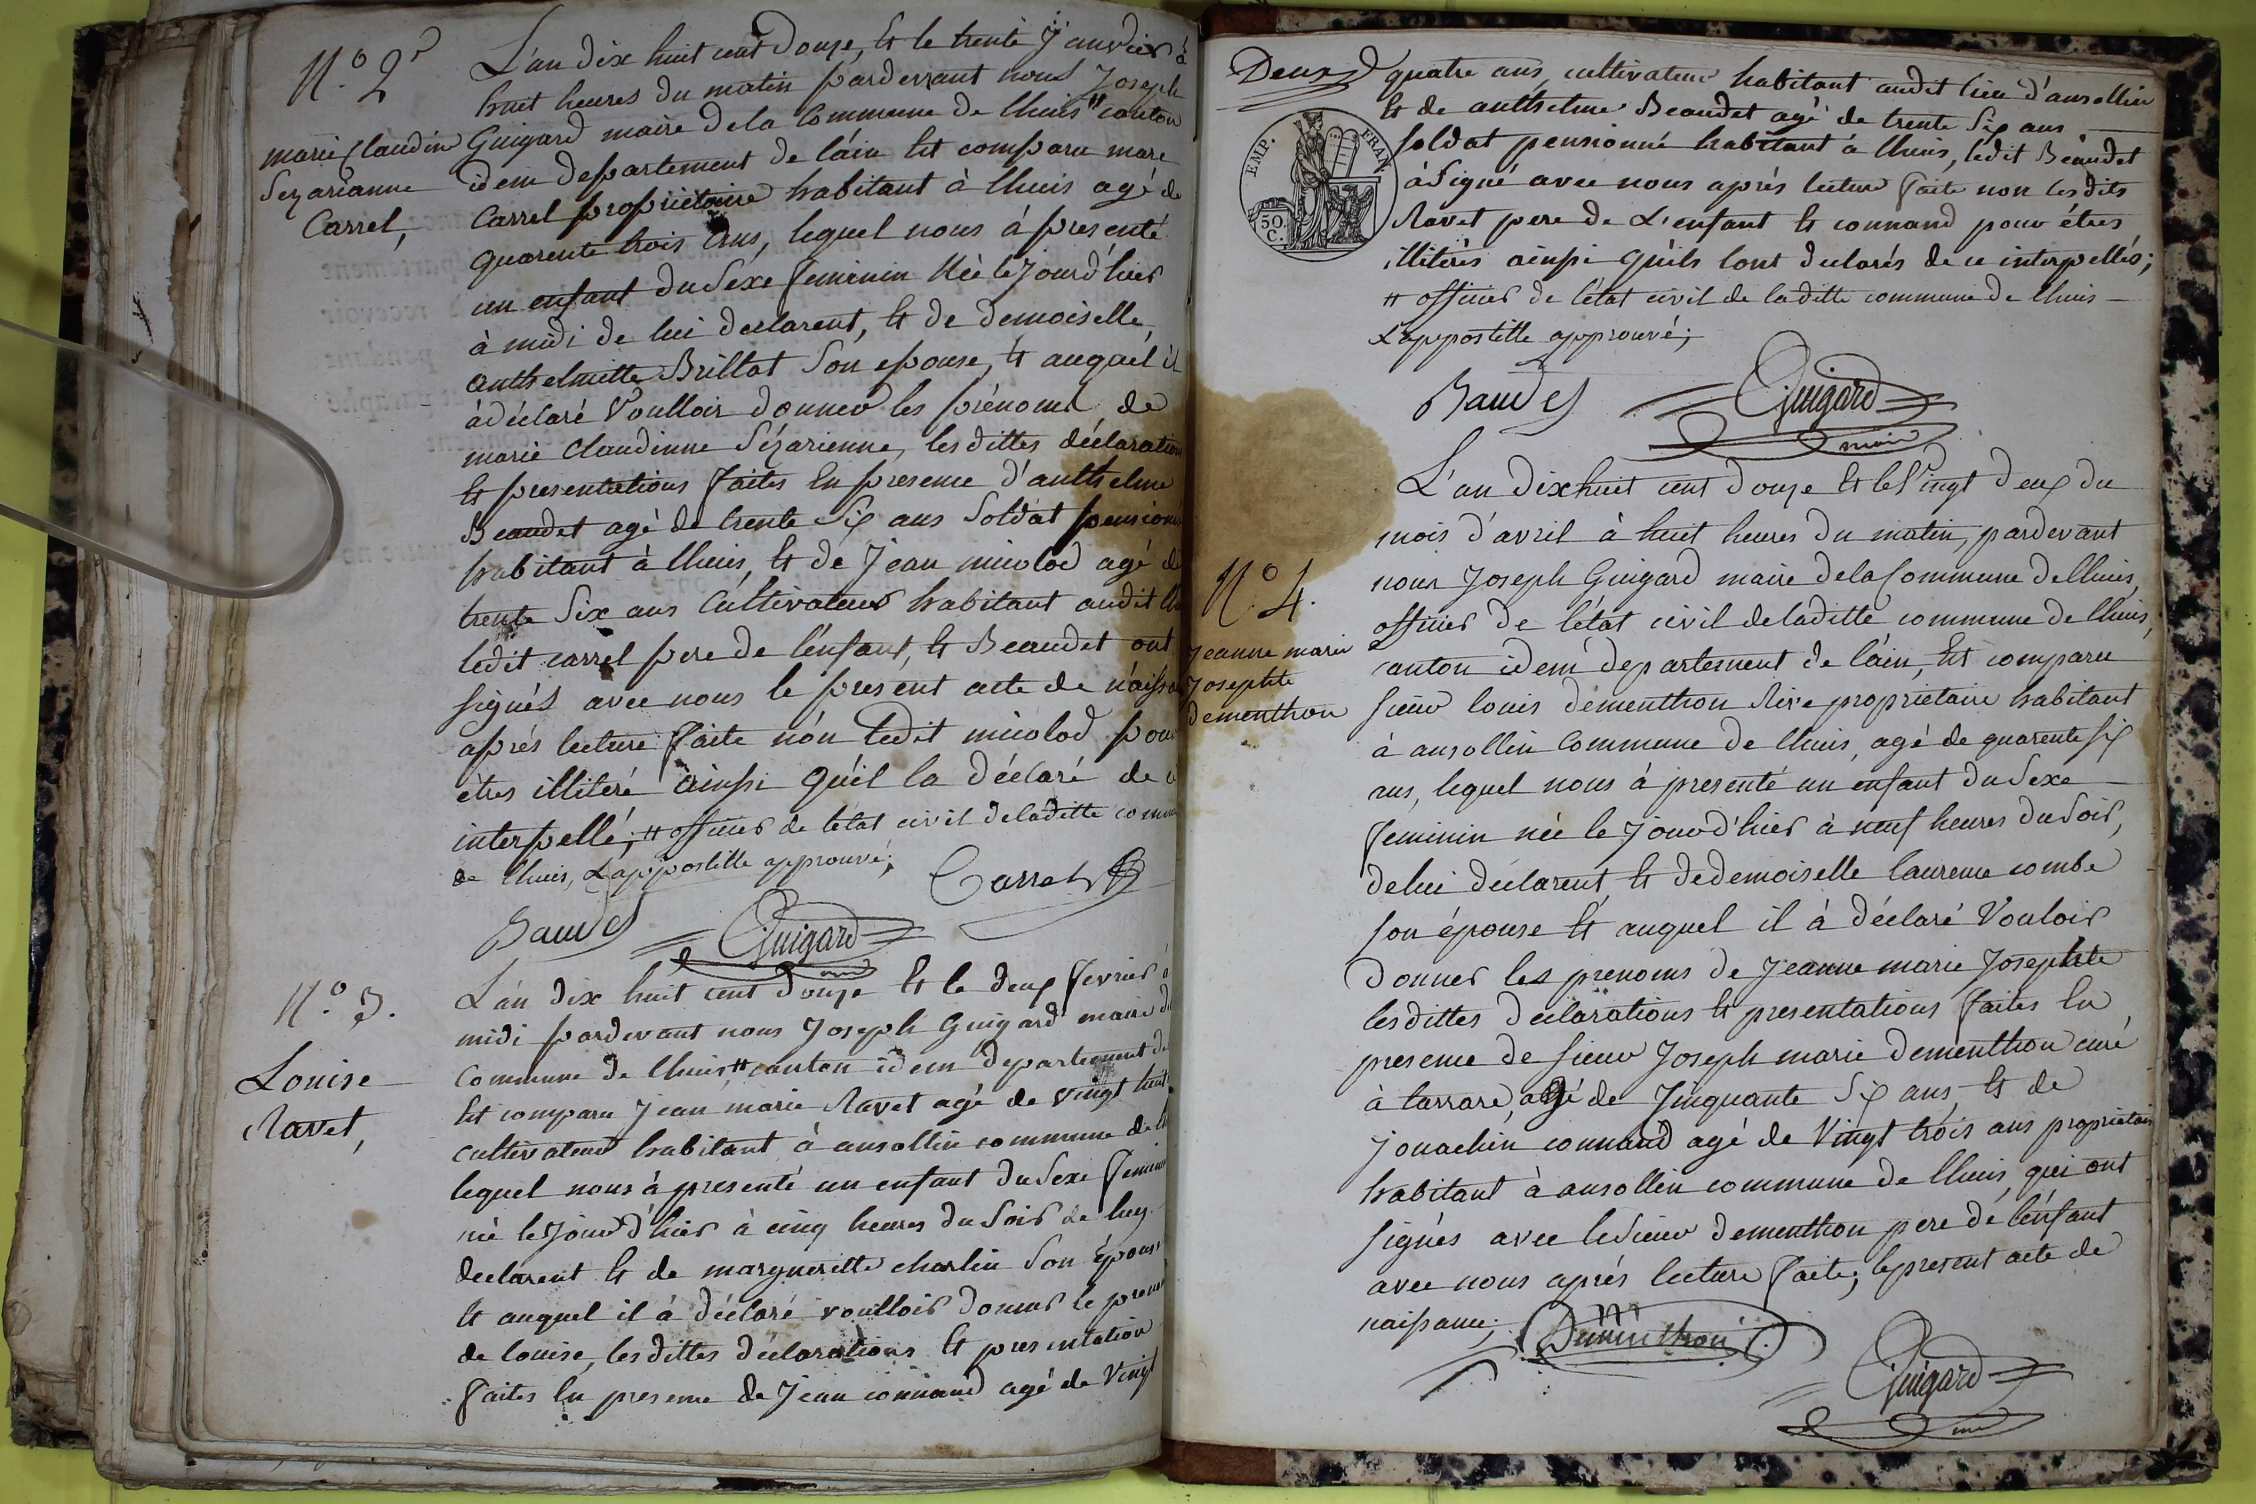 N.o 2
marie Claudine
Sezarianne
Carrel,
L'an dix huit cent douze, et le trente Janvier à
huit heures du matin pardevant nous Joseph
Guigard maire de la Commune de lhuis # canton
idem departement de láin Est comparu marc
Carrel propriètaire habitant à lhuis agé de
quarente trois ans, lequel nous à presenté
un enfant du Sexe feminin Né le jourd'hier
à midi de lui declarent, et de demoiselle
anthelmitte Brillat Son epouse, et auquel il
à déclaré Voulloir donner les prénoms de
marie Claudinne Sézarienne, les dittes déclaration
et presentations faites En presence d'anthelme
Beaudet agé de trente Six ans Soldat pension
habitant à lhuis, et de Jean micolod agé de
trente Six ans Cultivateur habitant audit
ledit carrel pere de l'enfant, et Beaudet ont
signés avec nous le present acte de naissa
aprés lecture faite non ledit micolod pour
étres illitéré ainsi qu'il la déclaré de
interpellé; # officier de l'état civil de laditte comm
de lhuis, L'appostille approuvé;
Carrel
Baudet
Guigard
N.o 3.
Louise
Ravet,
L'an dix huit cent douze et le deux fevrier à
midi pardevant nous Joseph Guigard maire de
Commune de lhuis # canton idem departement de
Est comparu Jean marie Ravet agé de vingt huit
cultivateur habitant à ansollin commune de
lequel nous à presenté un enfant du Sexe femin
né le jourd'hier à cinq heures du Soir de luy
declarent et de margueritte charlin Son épouse
et auquel il à déclaré voulloir donner le prenom
de louise, les dittes déclarations et presentation
faites En presence de Jean connand agé de Vingt
Deux
EMP. FRAN.
50 C.
quatre ans, cultivateur habitant audit lieu d'ansollin
et de anthelme Beaudet agé de trente Six ans
soldat pensionné habitant à lhuis, ledit Beaudet
à Signé avec nous aprés lecture faite non les dits
Ravet pere de L'enfant et connand pour étres
illitérés ainsi qu'ils l'ont declarés de ce interpellés;
# officier de l'état civil de laditte commune de lhuis
L'appostille approuvé;
Baudet
Guigard
maire
N.o 4.
Jeanne marie
Josephte
dementhon
L'an dixhuit cent douze et le Vingt deux du
mois d'avril à huit heures du matin, pardevant
nous Joseph Guigard maire de la Commune de lhuis,
officier de l'état civil de laditte commune de lhuis,
canton idem departement de láin, Est comparu
sieur louis dementhon Rive propriétaire habitant
à ansollin Commune de lhuis, agé de quarente six
ans, lequel nous à presenté un enfant du Sexe
feminin née le jourd'hier à neuf heures du Soir,
de lui declarent, et de demoiselle laurence combe
son épouse et auquel il à déclaré Vouloir
donner les prenoms de Jeanne marie Josephte
les dittes declarations et presentations faites En
presence de sieur Joseph marie dementhon curé
à tarrare, agé de Jinquante Six ans, et de
Jouachin connand agé de Vingt trois ans propriétaire
habitant à ansollin commune de lhuis, qui ont
signés avec le Sieur dementhon pere de l'enfant
avec nous aprés lecture faite; le present acte de
naissance;
Dementhon
Guigard